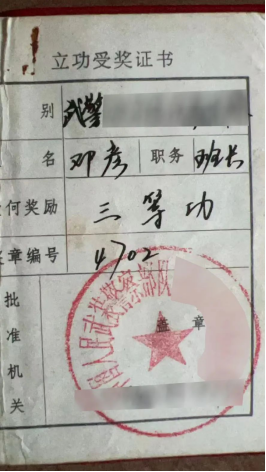 立功受奖证书
别 武警
名 邓彦 职务 班长
何奖励 三等功
章编号 4702
批准机关
盖章
人民武装警察部队